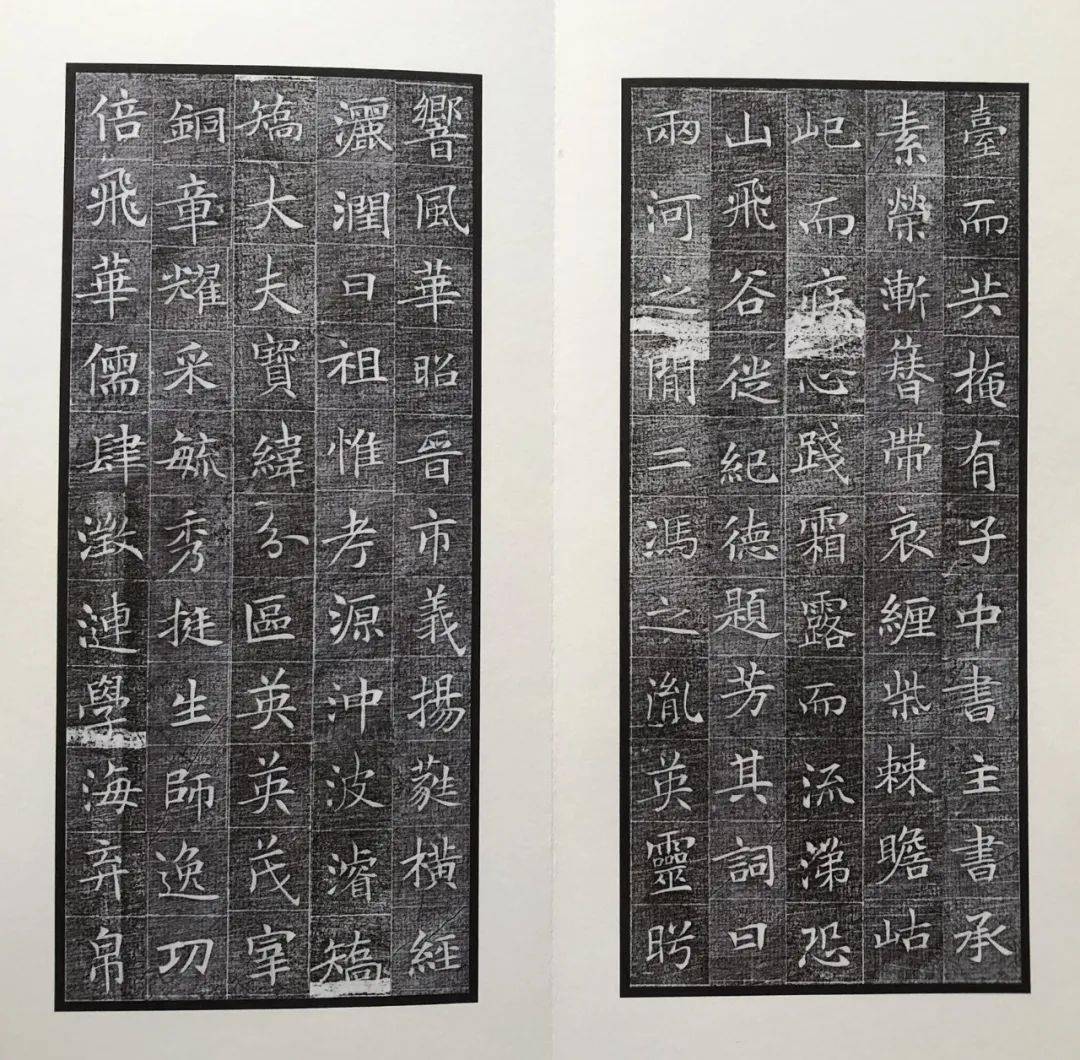 臺而共掩有子中書主書承
素榮漸簪帶哀纏柴棘瞻岵
屺而疚心踐霜露而流涕恐
山飛谷徙紀德題芳其詞曰
兩河之閒二馮之胤英靈肸
響風華昭晉市義揚蕤橫經
灑潤曰祖惟考源沖波濬矯
矯大夫寶緯分區英英茂宰
銅章耀采毓秀挺生師逸功
倍飛華儒肆澂漣學海弃帛